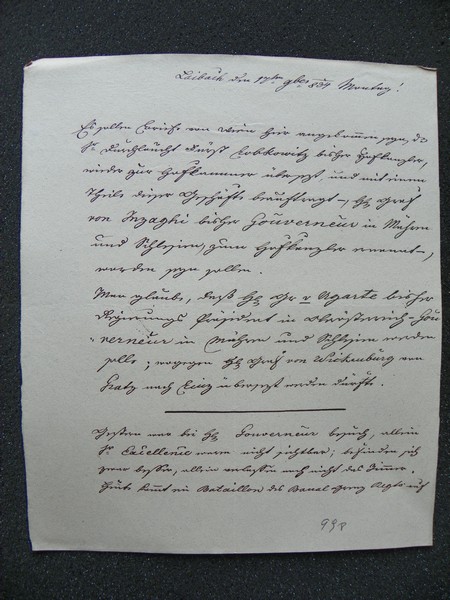 Laibach den 17ten gber 834 Montag!
Es sollen Briefe von Wien hier angekommen seyn, daß
Sr. Durchlaucht Fürst Lobkowitz bisher Hofkanzler,
wieder zur Hofkammer übersezt und mit einem
Theile dieser Geschäfte beauftragt, H Graf
von Inzaghi bisher Gouverneur in Mähren
und Schlesien, zum Hofkanzler ernannt,
worden seyn sollen.
Man glaubt, daß H Gr v Ugarte bisher
Regierungs Präsident in Oberösterreich Gou-
verneur in Mähren und Schlesien werden
solle; wogegen H Graf von Wickenburg von
Gratz nach Linz übersezt werden dürfte.
Gestern war bei H Gouverneur besuch, allein
Sr. Excellenz waren nicht sichtbar; befinden sich
zwar besser, allein verlassen noch nicht das Zimmer.
Heute kommt ein Bataillon des Banal Grenz Regts
99